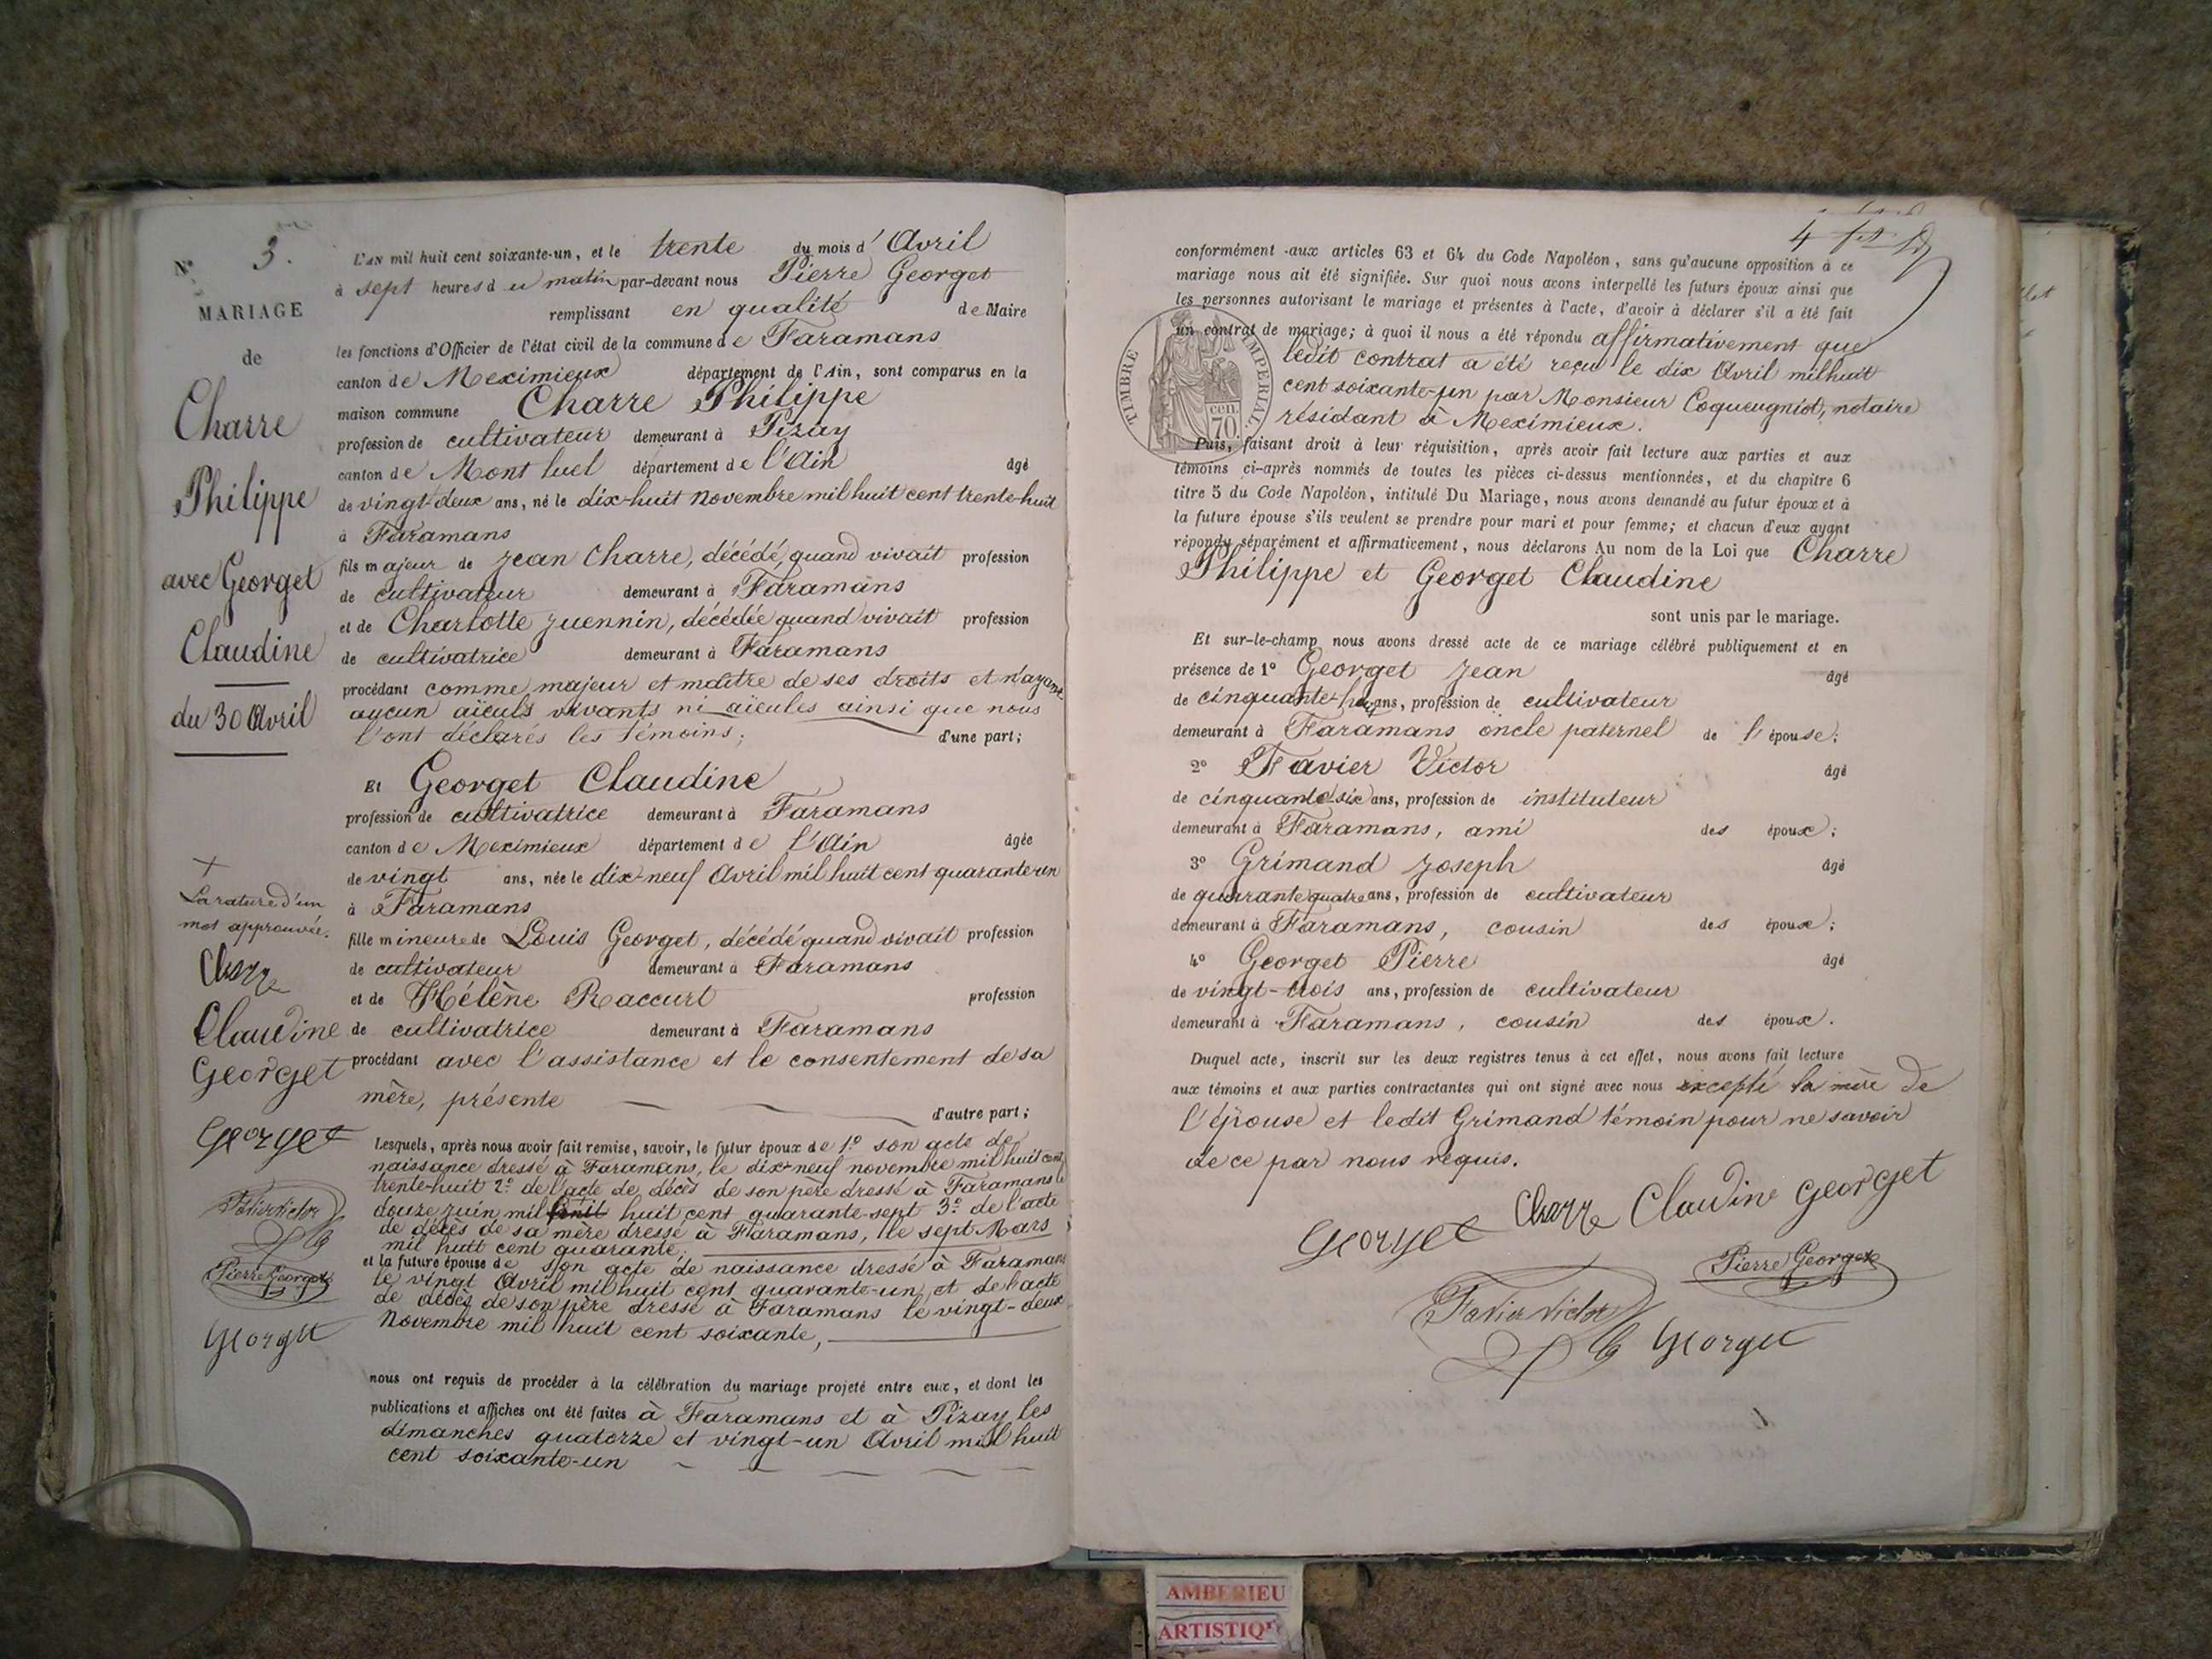 N° 3.
MARIAGE
de
Charre
Philippe
avec Georget
Claudine
du 30 Avril
+
La rature d'un
mot approuvée.
Charre
Claudine
Georget
Georget
Favier Victor
Pierre Georget
Georget
L'AN mil huit cent soixante-un, et le trente du mois d'Avril
à sept heures du matin par-devant nous Pierre Georget
remplissant en qualité de Maire
les fonctions d'Officier de l'état civil de la commune de Faramans
canton de Meximieux département de l'Ain, sont comparus en la
maison commune Charre Philippe
profession de cultivateur demeurant à Pizay
canton de Mont luel département de l'Ain âgé
de vingt-deux ans, né le dix-huit Novembre mil huit cent trente-huit
à Faramans
fils majeur de Jean Charre, décédé, quand vivait profession
de cultivateur demeurant à Faramans
et de Charlotte Juennin, décédée quand vivait profession
de cultivatrice demeurant à Faramans
procédant comme majeur et maître de ses droits et n'ayant
aucun aïeuls vivants ni aïeules ainsi que nous
l'ont déclarés les témoins; d'une part;
Et Georget Claudine
profession de cultivatrice demeurant à Faramans
canton de Meximieux département de l'Ain âgée
de vingt ans, née le dix-neuf Avril mil huit cent quarante un
à Faramans
fille mineure de Louis Georget, décédé quand vivait profession
de cultivateur demeurant à Faramans
et de Hélène Raccurt profession
de cultivatrice demeurant à Faramans
procédant avec l'assistance et le consentement de sa
mère, présente d'autre part;
Lesquels, après nous avoir fait remise, savoir, le futur époux de 1° son acte de
naissance dressé à Faramans, le dix-neuf novembre mil huit cent
trente-huit 2° de l'acte de décès de son père dressé à Faramans le
douze juin mil huit cent quarante-sept 3° de l'acte
de décès de sa mère dressé à Faramans, le sept Mars
mil huit cent quarante;
et la future épouse de son acte de naissance dressé à Faramans
le vingt Avril mil huit cent quarante-un, et de l'acte
de décès de son père dressé à Faramans le vingt-deux
Novembre mil huit cent soixante,
nous ont requis de procéder à la célébration du mariage projeté entre eux, et dont les
publications et affiches ont été faites à Faramans et à Pizay les
dimanches quatorze et vingt-un Avril mil huit
cent soixante-un
4
conformément aux articles 63 et 64 du Code Napoléon, sans qu'aucune opposition à ce
mariage nous ait été signifiée. Sur quoi nous avons interpellé les futurs époux ainsi que
les personnes autorisant le mariage et présentes à l'acte, d'avoir à déclarer s'il a été fait
un contrat de mariage; à quoi il nous a été répondu affirmativement que
ledit contrat a été reçu le dix Avril mil huit
cent soixante-un par Monsieur Coqueugniot, notaire
résidant à Meximieux.
TIMBRE IMPERIAL.
cen.
70
Puis, faisant droit à leur réquisition, après avoir fait lecture aux parties et aux
témoins ci-après nommés de toutes les pièces ci-dessus mentionnées, et du chapitre 6
titre 5 du Code Napoléon, intitulé Du Mariage, nous avons demandé au futur époux et à
la future épouse s'ils veulent se prendre pour mari et pour femme; et chacun d'eux ayant
répondu séparément et affirmativement, nous déclarons Au nom de la Loi que Charre
Philippe et Georget Claudine
sont unis par le mariage.
Et sur-le-champ nous avons dressé acte de ce mariage célébré publiquement et en
présence de 1° Georget Jean âgé
de cinquante-huit ans, profession de cultivateur
demeurant à Faramans oncle paternel de l'épouse;
2° Favier Victor âgé
de cinquante-six ans, profession de instituteur
demeurant à Faramans, ami des époux;
3° Grimand Joseph âgé
de quarante quatre ans, profession de cultivateur
demeurant à Faramans, cousin des époux;
4° Georget Pierre âgé
de vingt-trois ans, profession de cultivateur
demeurant à Faramans, cousin des époux.
Duquel acte, inscrit sur les deux registres tenus à cet effet, nous avons fait lecture
aux témoins et aux parties contractantes qui ont signé avec nous excepté la mère de
l'épouse et ledit Grimand témoin pour ne savoir
de ce par nous requis.
Georget Charre Claudine Georget
Pierre Georget
Favier Victor
Georget
AMBERIEU
ARTISTIQ